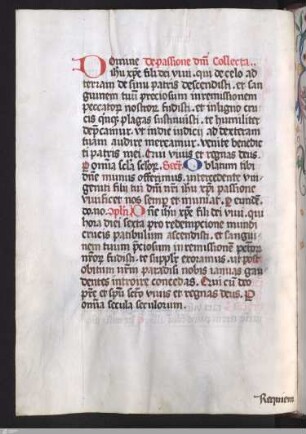 De passione dm̄ Collecta..
Domine
ihu xp̄e fili dei viui. qui de celo ad
terram de sinu patris descendisti. et san
guinem tuū preciosum in remissionem
peccatorū nostrorū fudisti. et in ligno cru
cis quinqꝫ plagas sustinuisti. te humiliter
deprecamur. vt in die iudicij ad dexteram
tuam audire mereamur. venite benedic
ti patris mei. Qui viuis et regnas deus.
ꝑ omnia secla seclorꝝ. Secrē Oblatum tibi
dn̄e munus offerimus. intercedente vni
geniti filij tui dm̄ nr̄i ihu xp̄i passione
viuificet nos semper et muniat. ꝑ eundē.
do. no. Cōplen̄ Dn̄e ihu xp̄e fili dei viui. qui
hora diei sexta pro redempcione mundi
crucis patibulum ascendisti. et sangui
nem tuum preciosum in remissionē pctorū
nr̄orꝝ fudisti. te supplr̄ exoramus. vt post
obitum nr̄m paradisi nobis ianuas gau
dentes introire concedas. Qui cū deo
pr̄e et spū sctō viuis et regnas deus. ꝑ
omnia secula seculorum.
Requiem